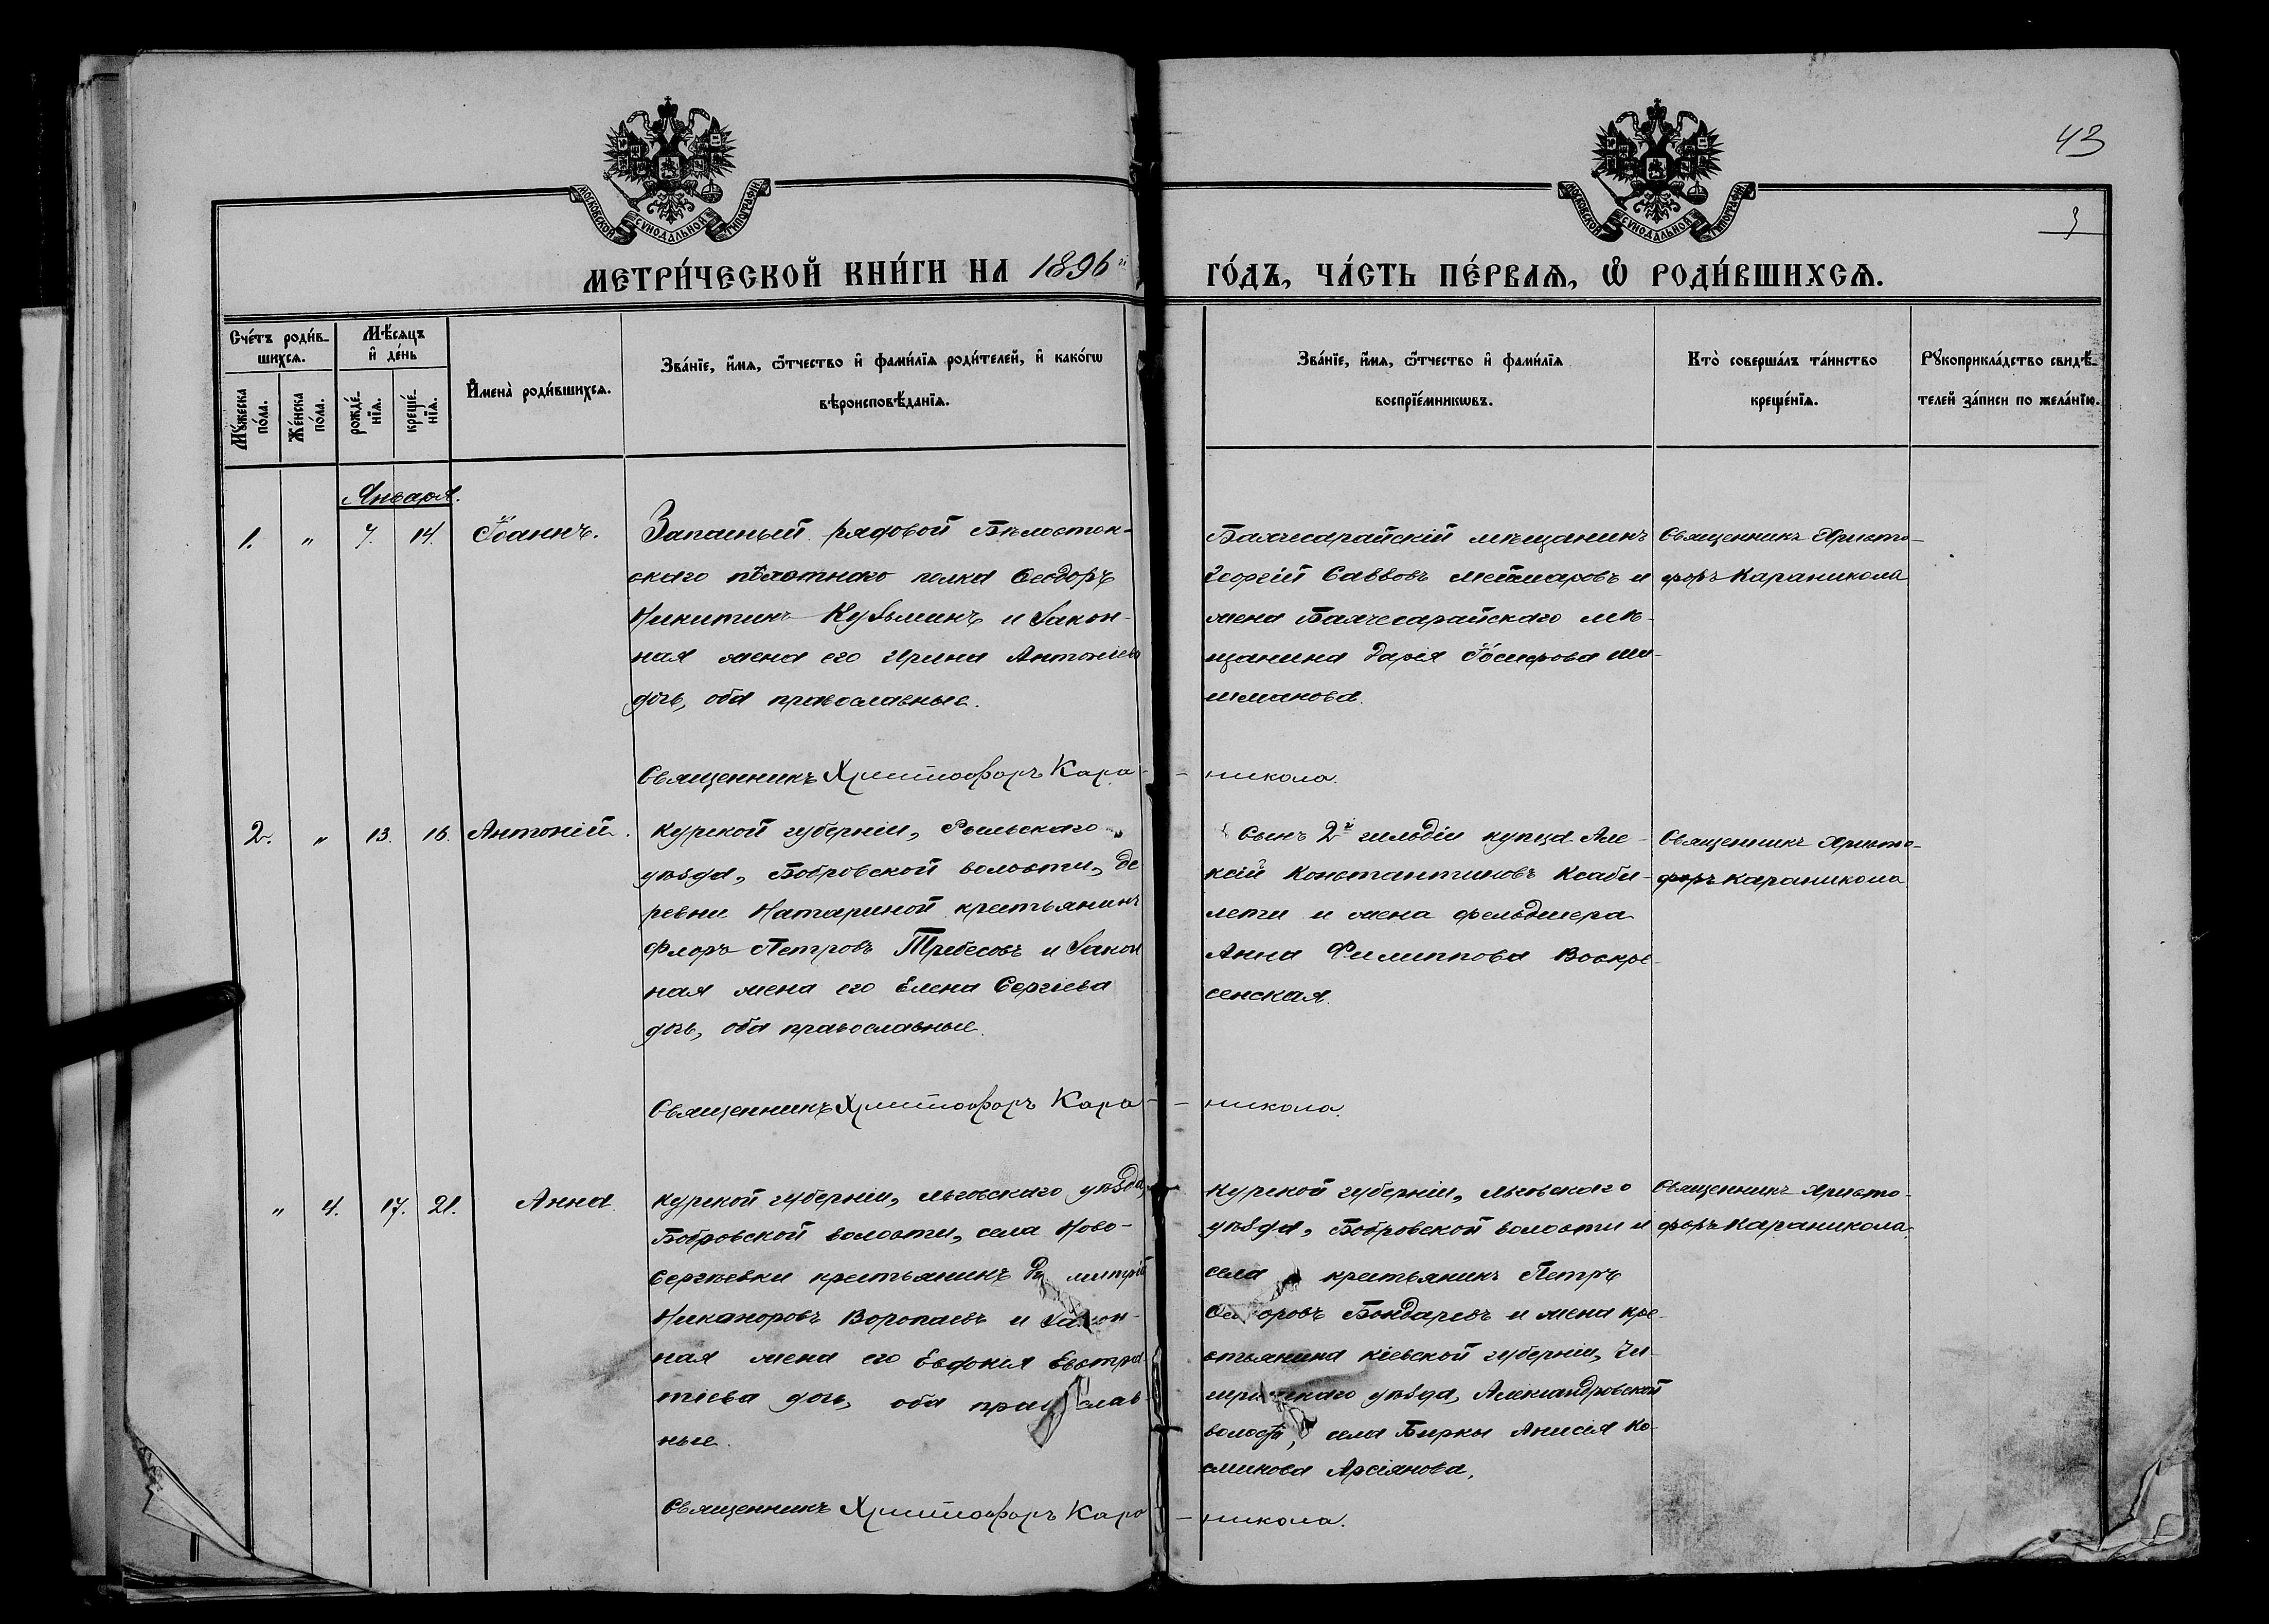 43
3
МОСКОВСКОЙ СѴНОДАЛЬНОЙ ТИПОГРАФІИ
МОСКОВСКОЙ СѴНОДАЛЬНОЙ ТИПОГРАФІИ
МЕТРИ́ЧЕСКОЙ КНИ́ГИ НА 1896й ГО́ДЪ, ЧА́СТЬ ПЕ́РВАѦ, Ѡ҆ РОДИ́ВШИХСѦ.
Сче́тъ роди́в-
шихсѧ.
Мꙋ́жеска
по́ла.
Же́нска
по́ла.
Мѣ́сѧцъ
и҆ де́нь
рожде́-
нїѧ.
креще́-
нїѧ.
И҆мена̀ роди́вшихсѧ.
Зва́нїе, и҆́мѧ, ѻ҆́тчество и҆ фами́лїѧ роди́телей, и҆ како́гѡ
вѣроисповѣ́данїѧ.
Зва́нїе, и҆́мѧ, ѻ҆́тчество и҆ фами́лїѧ
воспрїе́мникѡвъ.
Кто̀ соверша́лъ та́инство
креще́нїѧ.
Рꙋкоприкла́дство свидѣ́-
телей за́писи по жела́нїю.
Января.
1. " 7. 14. Іоаннъ.
Запасный рядовой Бѣлосток-
скаго пѣхотнаго полка Ѳеодоръ
Никитинъ Кузьминъ и закон-
ная жена его Ирина Антоніева
дочь, оба православные.
Бахчесарайскій мѣщанинъ
Георгій Саввовъ и
жена Бахчесарайскаго мѣ-
щанина Дарія Іосифова Ши-
шманова.
Священникъ Христо-
форъ Караникола
Священникъ Христофоръ Кара- - никола.
2. " 13. 16. Антоній.
Курской губерніи, Рыльскаго
уѣзда, Бобровской волости, де
ревни Натариной крестьянинъ
Флоръ Петровъ Требесовъ и закон
ная жена его Елена Сергіева
дочь, оба православные.
Сынъ 2й гильдіи купца Але-
ксій Константиновъ Ксаби-
лети и жена фельдшера
Анна Филиппова Воскре-
сенская.
Священникъ Христо-
форъ Караникола
Священникъ Христофоръ Кара- - никола.
" 4. 17. 21. Анна
Курской губерніи, Льговскаго уѣзда,
Бобровской волости, села Ново-
Сергѣевки крестьянинъ Димитрій
Никаноровъ Воропаевъ и закон-
ная жена его Евдокія Евстра-
тіева дочь, оба православ-
ные.
Курской губерніи, Льговскаго
уѣзда, Бобровской волости и
села крестьянинъ Петръ
Ѳеодоровъ Бондаревъ и жена кре-
стьянина Кіевской губерніи, Чи-
гиринскаго уѣзда, Александровской
волости, села Бирки Анисія Ко-
смикова Арсіянова.
Священникъ Христо-
форъ Караникола.
Священникъ Христофоръ Кара - никола.